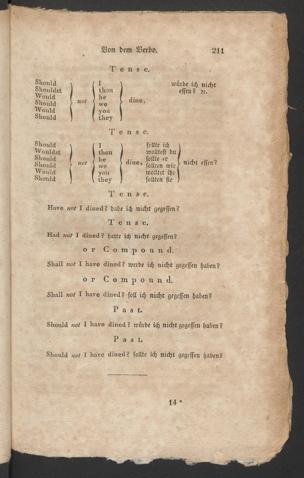 Von dem Verbo. 211
Tense.
Should I würde ich nicht
Shouldst thou essen? ꝛc.
Would he
Should not we dine,
Would you
Should they
Tense.
Should I sollte ich
Wouldst thou wolltest du
Should he sollte er
Should not we dine, sollten wir nicht essen?
Would you wolltet ihr
Should they sollten sie
Tense.
Have not I dined? habe ich nicht gegessen?
Tense.
Had not I dined? hatte ich nicht gegessen?
or Compound.
Shall not I have dined? werde ich nicht gegessen haben?
or Compound.
Shall not I have dined? soll ich nicht gegessen haben?
Past.
Should not I have dined? würde ich nicht gegessen haben?
Past.
Should not I have dined? sollte ich nicht gegessen haben?
14*